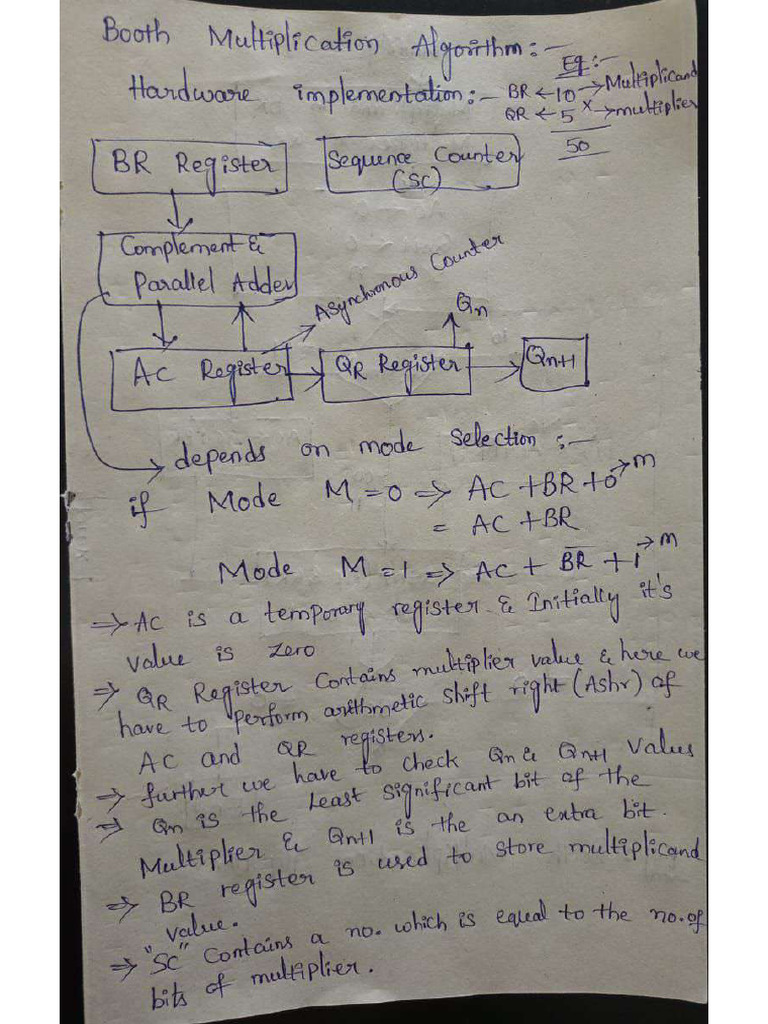 Booth Multiplication Algorithm:-
Hardware implementation:-
Eg:-
BR ← 10 → Multiplicand
QR ← 5 × → multiplier
50
BR Register
Sequence Counter
(SC)
Complement &
Parallel Adder
Asynchronous Counter
Qn
AC Register
QR Register
Qn+1
depends on mode selection:-
if Mode M=0 ⇒ AC + BR + 0 → m
= AC + BR
Mode M=1 ⇒ AC + B̅R̅ + 1 → m
⇒ AC is a temporary register & Initially it's
value is zero
⇒ QR Register Contains multiplier value & here we
have to perform arithmetic shift right (Ashr) of
AC and QR registers.
⇒ further we have to check Qn & Qn+1 values
⇒ Qn is the Least significant bit of the
Multiplier & Qn+1 is the an extra bit.
⇒ BR register is used to store multiplicand
value.
⇒ "SC" Contains a no. which is equal to the no. of
bits of multiplier.